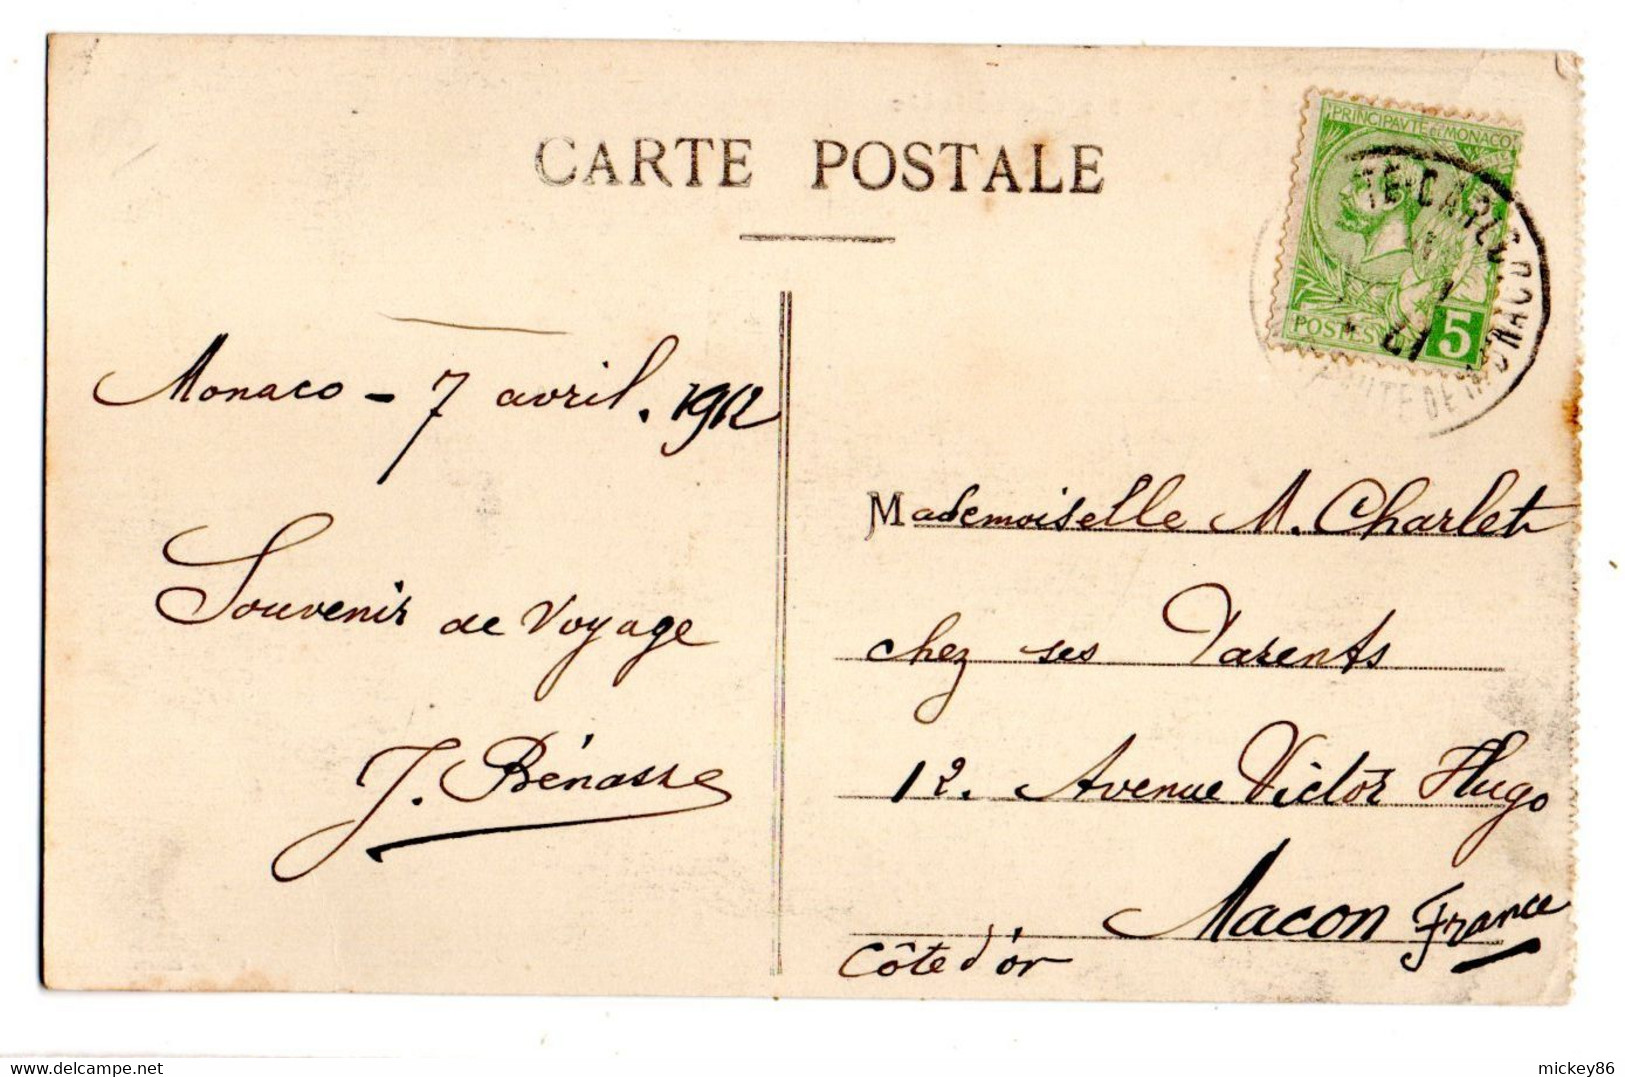 CARTE POSTALE
PRINCIPAVTÉ DE MONACO
POSTES 5
TE-CARLO
PAUTE DE MONACO
Monaco - 7 avril. 1912
Souvenir de Voyage
J. Bénasse
Mademoiselle M. Charlet
chez ses Parents
12. Avenue Victor Hugo
Macon France
Côte d'or
www.delcampe.net
mickey86